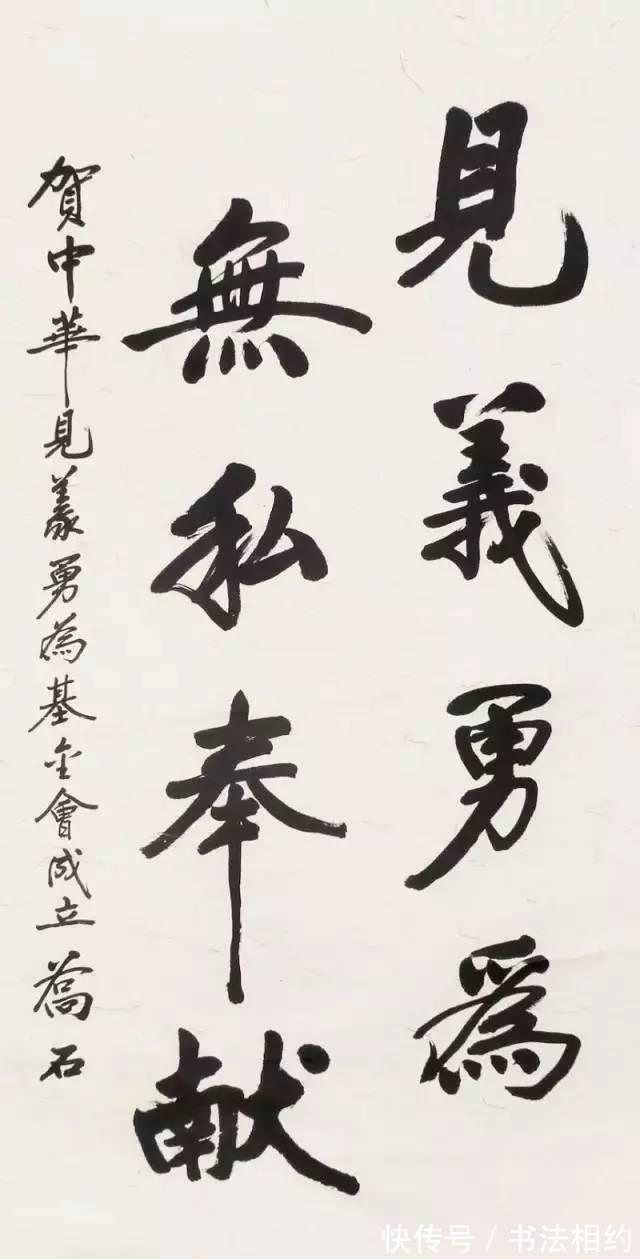 見義勇為
無私奉献
賀中華見義勇為基金會成立 喬石
快传号 / 书法相约